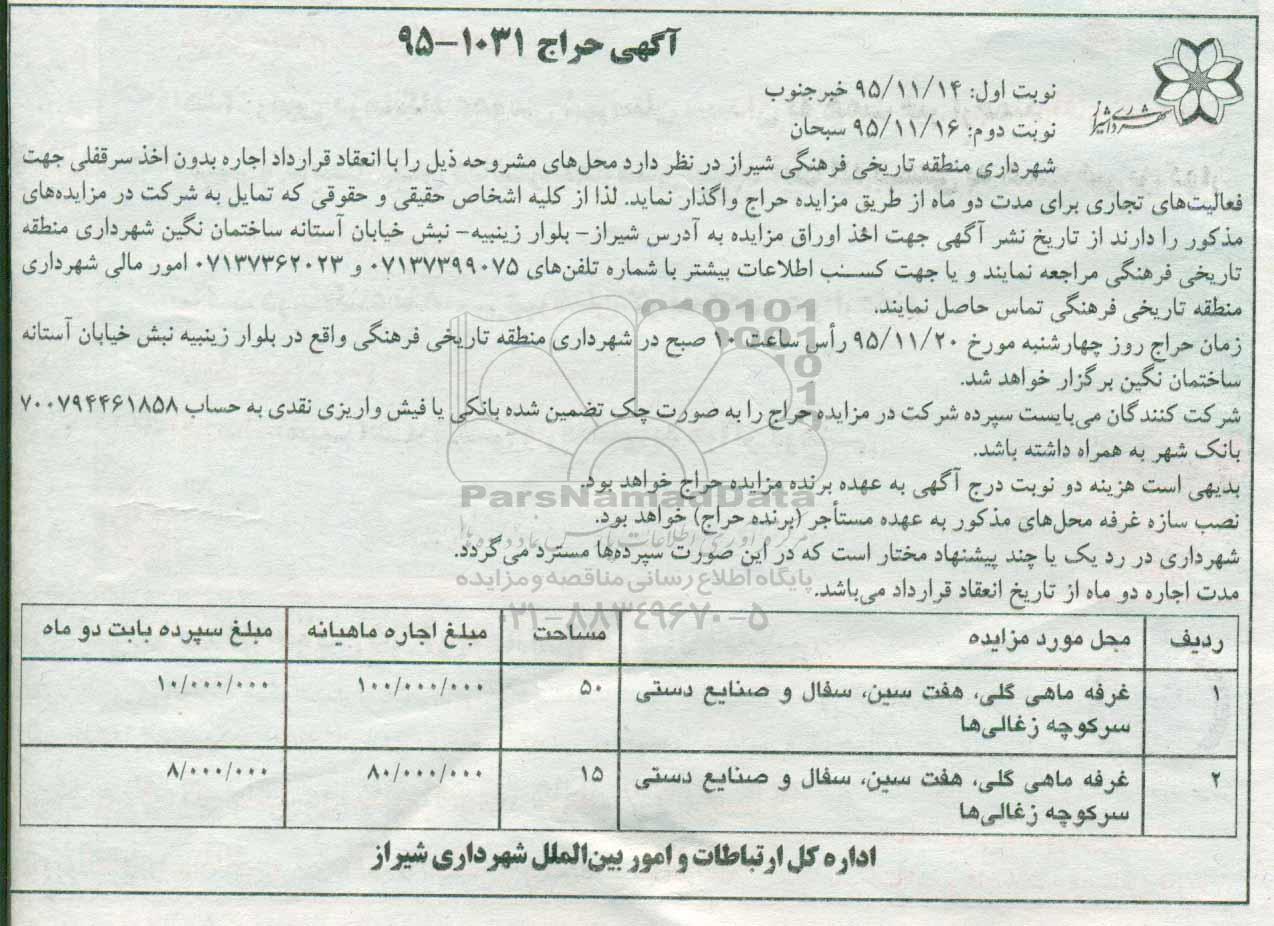 آگهی حراج ۱۰۳۱-۹۵
شهرداری شیراز
نوبت اول: ۹۵/۱۱/۱۴ خبرجنوب
نوبت دوم: ۹۵/۱۱/۱۶ سبحان
شهرداری منطقه تاریخی فرهنگی شیراز در نظر دارد محل‌های مشروحه ذیل را با انعقاد قرارداد اجاره بدون اخذ سرقفلی جهت
فعالیت‌های تجاری برای مدت دو ماه از طریق مزایده حراج واگذار نماید. لذا از کلیه اشخاص حقیقی و حقوقی که تمایل به شرکت در مزایده‌های
مذکور را دارند از تاریخ نشر آگهی جهت اخذ اوراق مزایده به آدرس شیراز- بلوار زینبیه- نبش خیابان آستانه ساختمان نگین شهرداری منطقه
تاریخی فرهنگی مراجعه نمایند و یا جهت کسب اطلاعات بیشتر با شماره تلفن‌های ۰۷۱۳۷۳۹۹۰۷۵ و ۰۷۱۳۷۳۶۲۰۲۳ امور مالی شهرداری
منطقه تاریخی فرهنگی تماس حاصل نمایند.
زمان حراج روز چهارشنبه مورخ ۹۵/۱۱/۲۰ رأس ساعت ۱۰ صبح در شهرداری منطقه تاریخی فرهنگی واقع در بلوار زینبیه نبش خیابان آستانه
ساختمان نگین برگزار خواهد شد.
شرکت کنندگان می‌بایست سپرده شرکت در مزایده حراج را به صورت چک تضمین شده بانکی یا فیش واریزی نقدی به حساب ۷۰۰۷۹۴۴۶۱۸۵۸
بانک شهر به همراه داشته باشد.
بدیهی است هزینه دو نوبت درج آگهی به عهده برنده مزایده حراج خواهد بود.
نصب سازه غرفه محل‌های مذکور به عهده مستأجر (برنده حراج) خواهد بود.
شهرداری در رد یک یا چند پیشنهاد مختار است که در این صورت سپرده‌ها مسترد می‌گردد.
مدت اجاره دو ماه از تاریخ انعقاد قرارداد می‌باشد.
ParsNamadData
پایگاه اطلاع رسانی مناقصه و مزایده
۰۲۱-۸۸۳۴۹۶۷۰-۵
ردیف محل مورد مزایده مساحت مبلغ اجاره ماهیانه مبلغ سپرده بابت دو ماه
۱ غرفه ماهی گلی، هفت سین، سفال و صنایع دستی ۵۰ ۱۰۰/۰۰۰/۰۰۰ ۱۰/۰۰۰/۰۰۰
سرکوچه زغالی‌ها
۲ غرفه ماهی گلی، هفت سین، سفال و صنایع دستی ۱۵ ۸۰/۰۰۰/۰۰۰ ۸/۰۰۰/۰۰۰
سرکوچه زغالی‌ها
اداره کل ارتباطات و امور بین‌الملل شهرداری شیراز